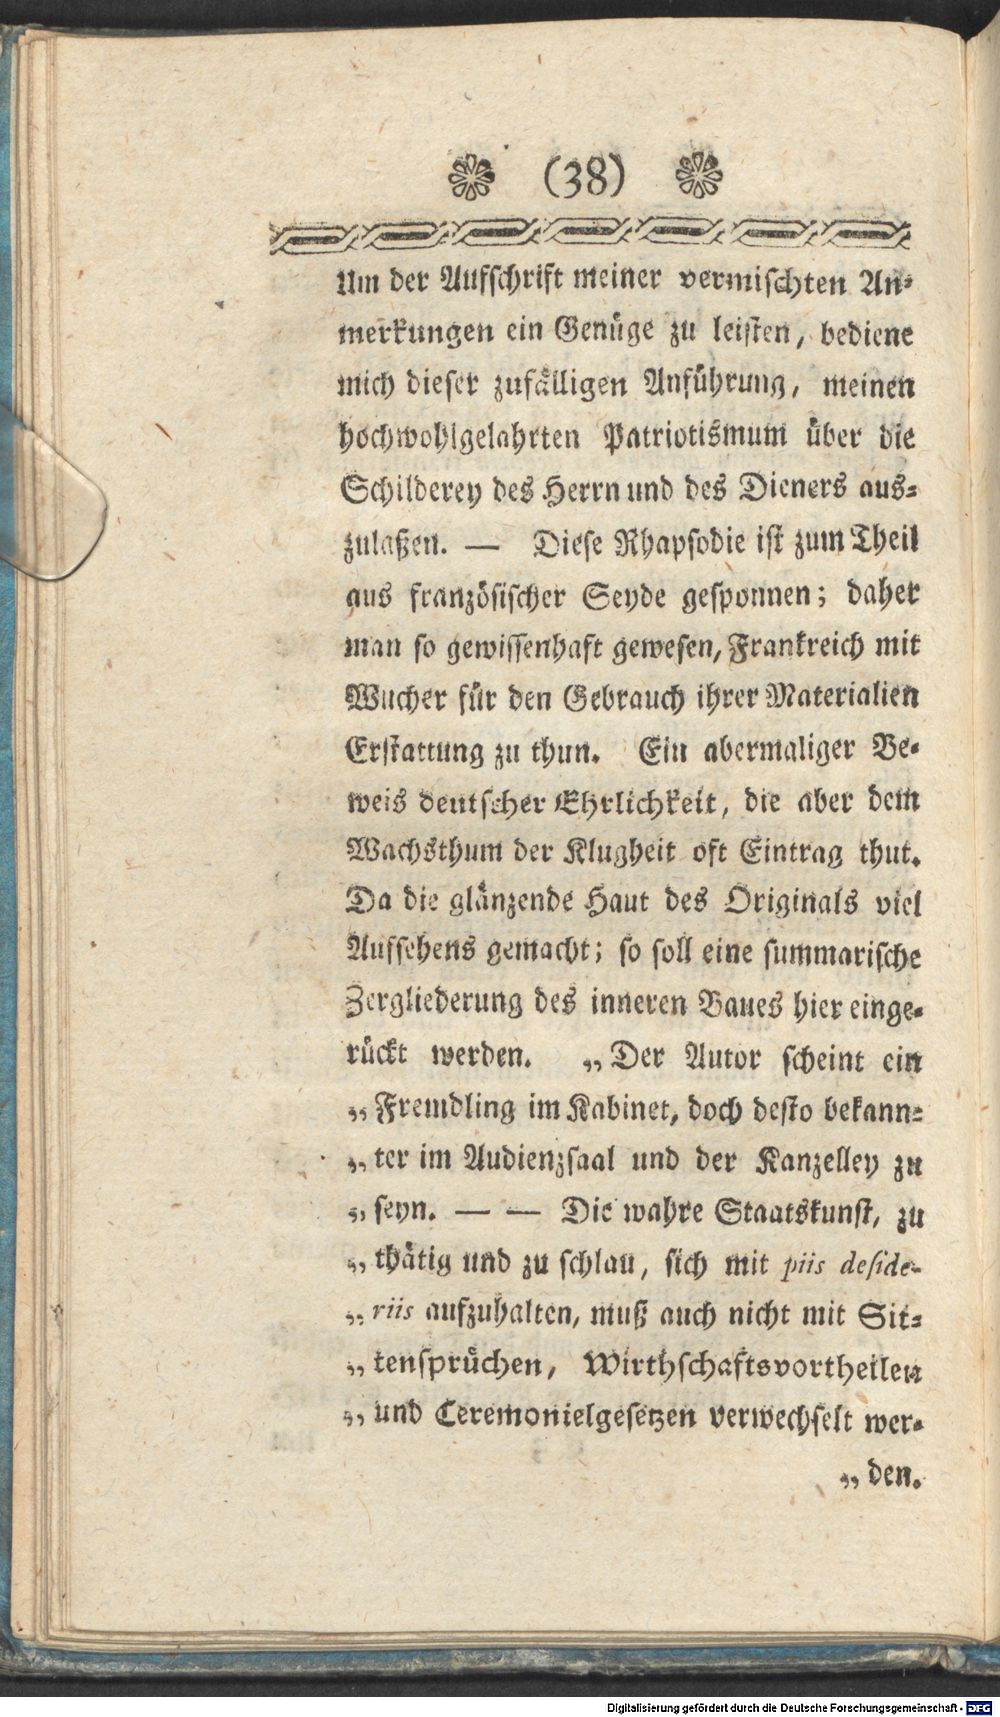 (38)
Um der Aufschrift meiner vermischten An-
merkungen ein Genüge zu leisten, bediene
mich dieser zufälligen Anführung, meinen
hochwohlgelahrten Patriotismum über die
Schilderey des Herrn und des Dieners aus-
zulaßen. — Diese Rhapsodie ist zum Theil
aus französischer Seyde gesponnen; daher
man so gewissenhaft gewesen, Frankreich mit
Wucher für den Gebrauch ihrer Materialien
Erstattung zu thun. Ein abermaliger Be-
weis deutscher Ehrlichkeit, die aber dem
Wachsthum der Klugheit oft Eintrag thut.
Da die glänzende Haut des Originals viel
Aufsehens gemacht; so soll eine summarische
Zergliederung des inneren Baues hier einge-
rückt werden. „Der Autor scheint ein
„Fremdling im Kabinet, doch desto bekann-
„ter im Audienzsaal und der Kanzelley zu
„seyn. — — Die wahre Staatskunst, zu
„thätig und zu schlau, sich mit piis deside-
„riis aufzuhalten, muß auch nicht mit Sit-
„tensprüchen, Wirthschaftsvortheilen
„und Ceremonielgesetzen verwechselt wer-
„den.
Digitalisierung gefördert durch die Deutsche Forschungsgemeinschaft - DFG